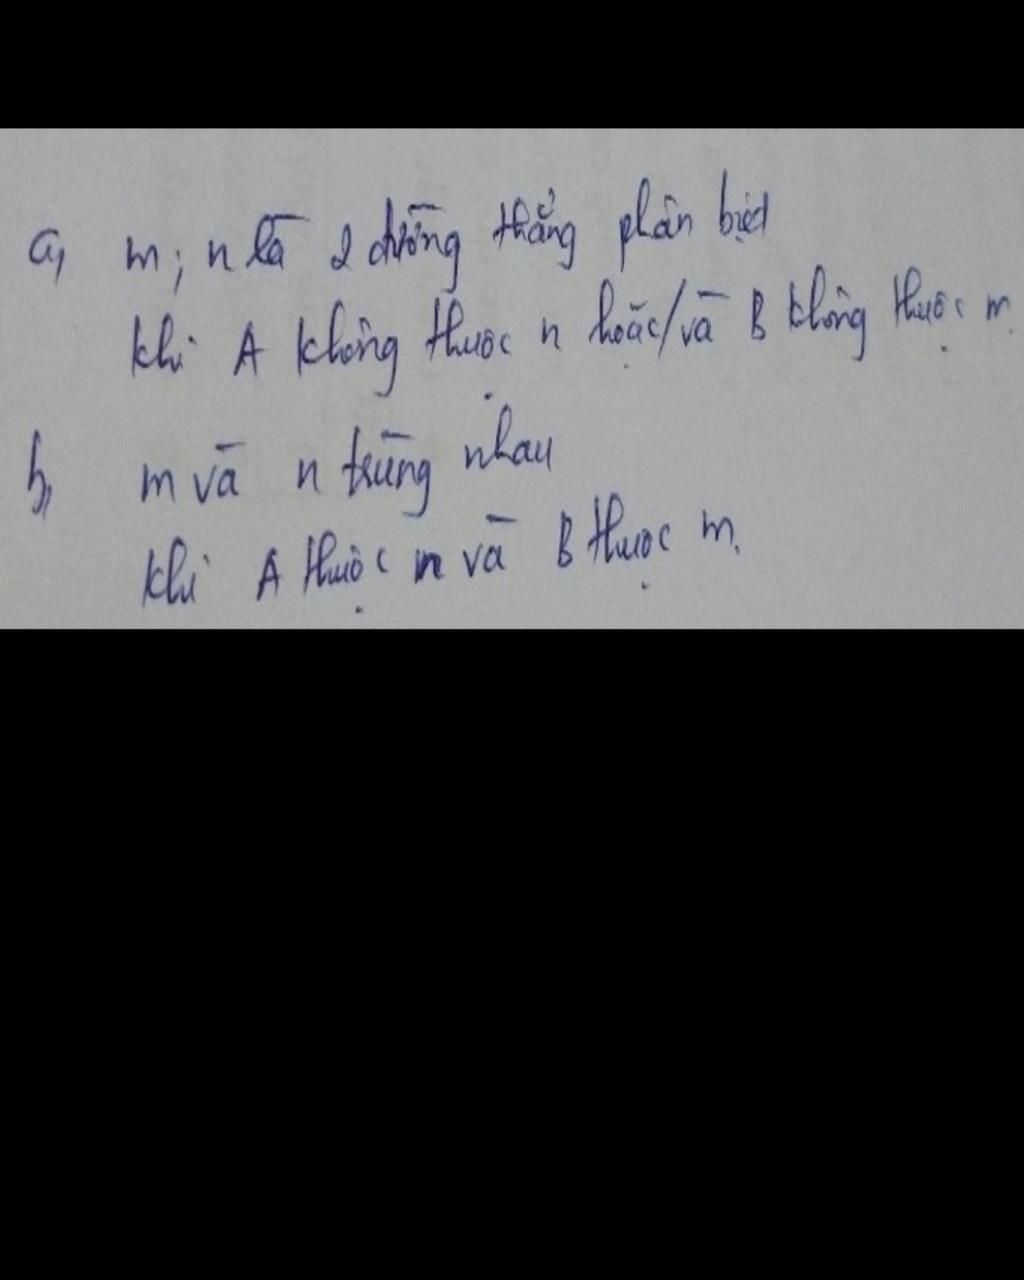 a, m; n là 2 đường thẳng phân biệt
khi A không thuộc n hoặc/và B không thuộc m
b, m và n trùng nhau
khi A thuộc n và B thuộc m.